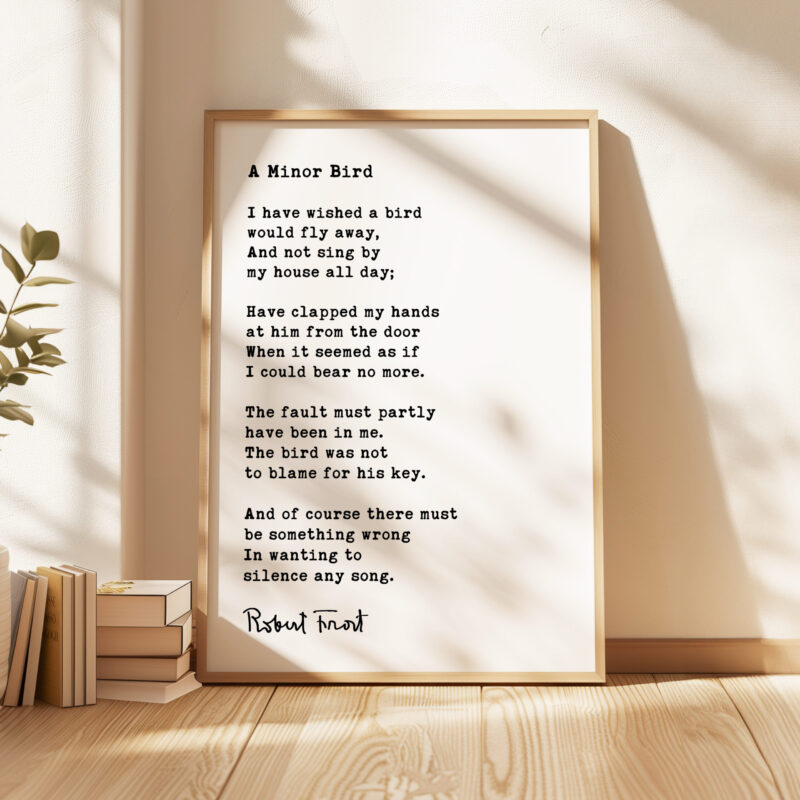 A Minor Bird
I have wished a bird
would fly away,
And not sing by
my house all day;
Have clapped my hands
at him from the door
When it seemed as if
I could bear no more.
The fault must partly
have been in me.
The bird was not
to blame for his key.
And of course there must
be something wrong
In wanting to
silence any song.
Robert Frost